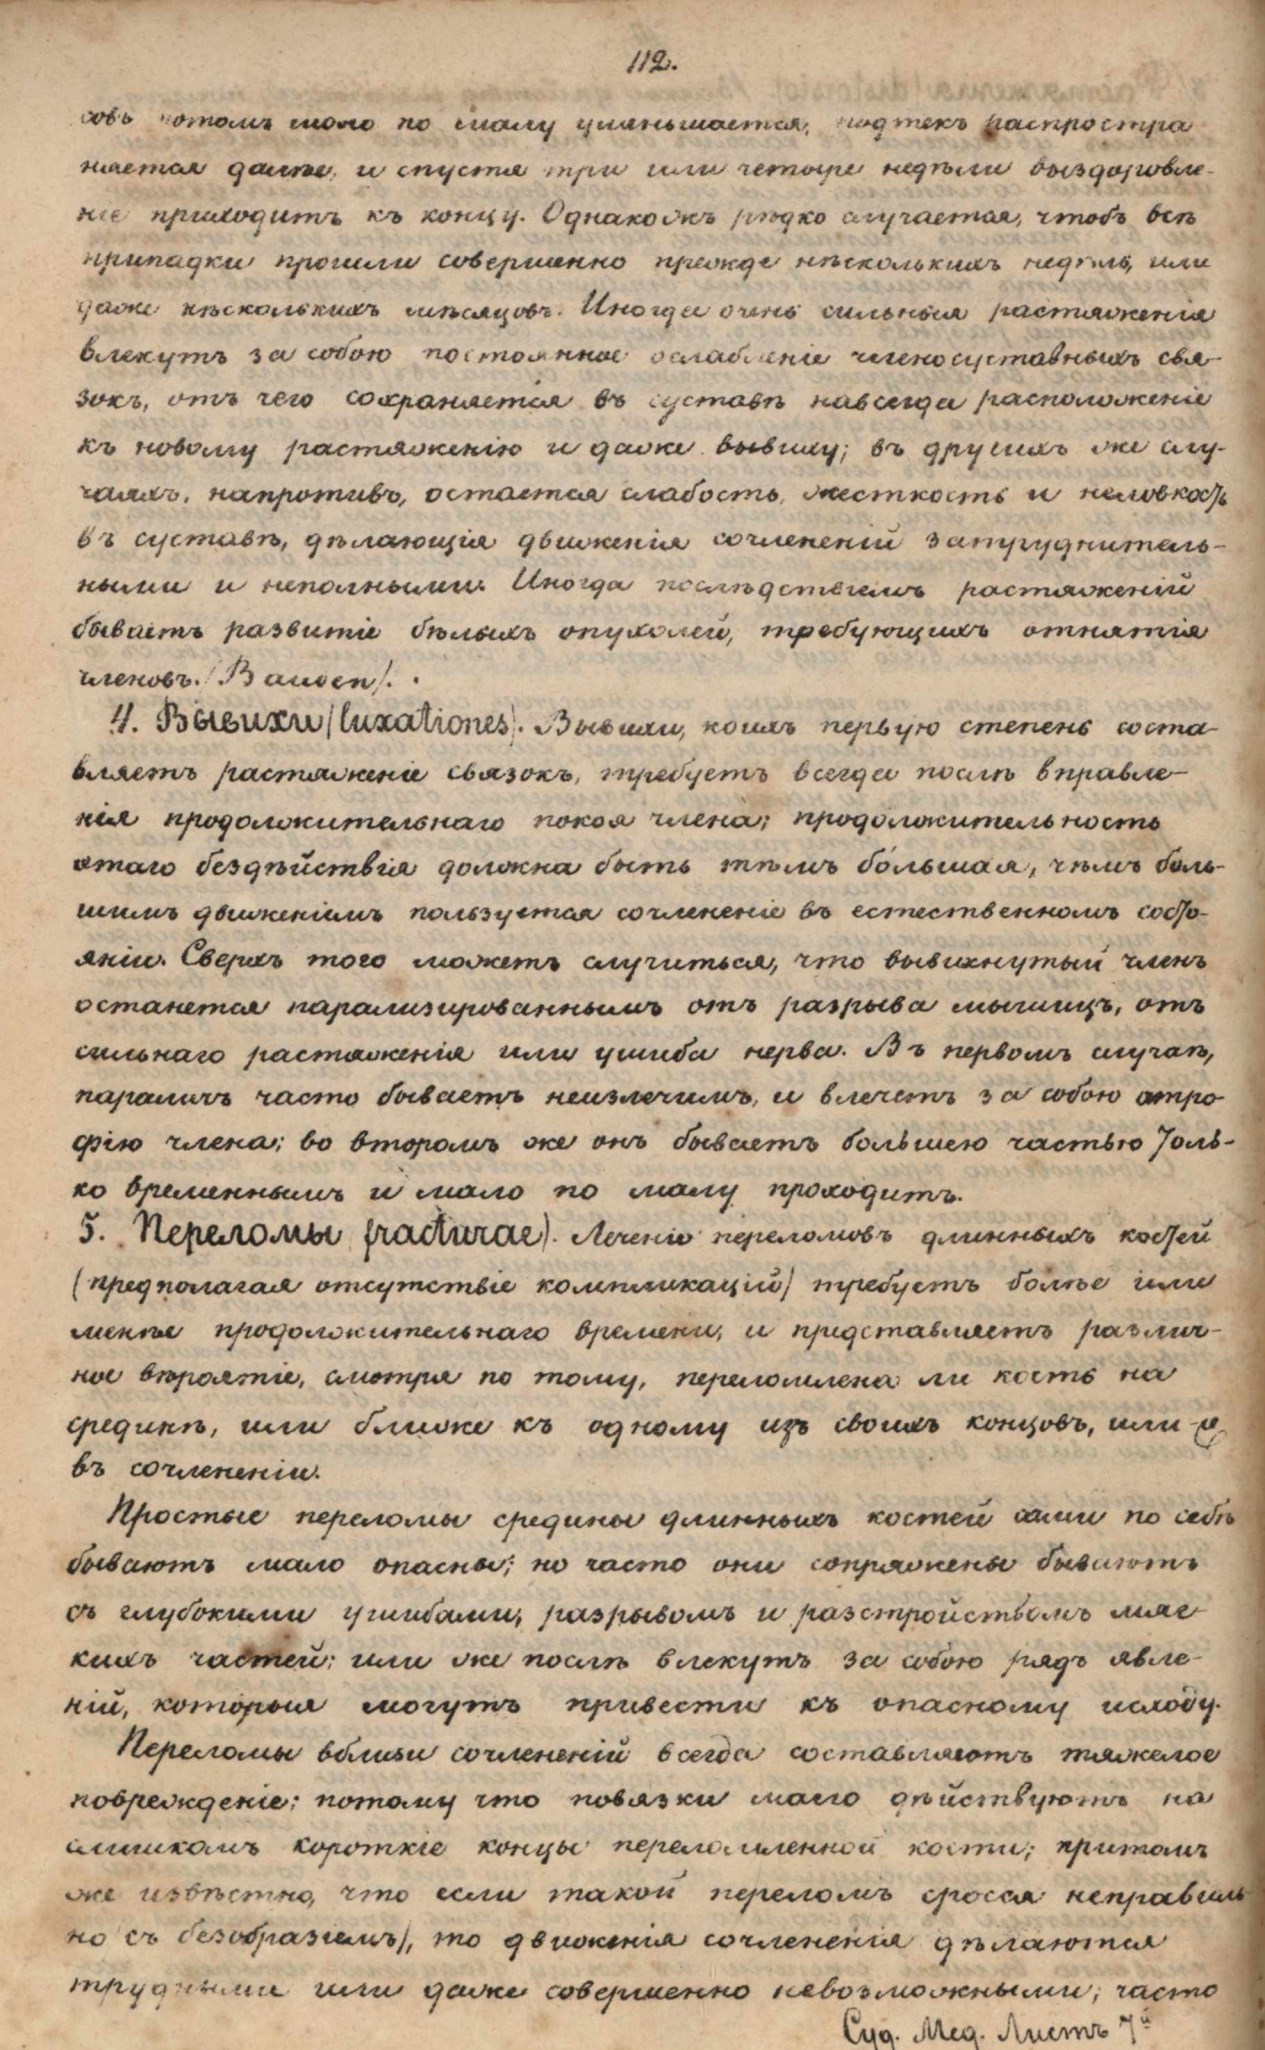 112.
совъ потомъ мало по малу уменьшается, подтекъ распростра-
няется далѣе, и спустя три или четыре недѣли выздоровле-
ніе приходитъ къ концу. Однакожъ рѣдко случается, чтобъ всѣ
припадки прошли совершенно прежде нѣсколькихъ недѣль, или
даже нѣсколькихъ мѣсяцовъ. Иногда очень сильныя растяженія
влекутъ за собою постоянное ослабленіе членосуставныхъ свя-
зокъ, отъ чего сохраняется въ суставѣ навсегда расположеніе
къ новому растяженію и даже вывиху; въ другихъ же слу-
чаяхъ, напротивъ, остается слабость, жесткость и неловкость
въ суставѣ, дѣлающія движенія сочлененій затруднитель-
ными и неполными. Иногда послѣдствіемъ растяженій
бываетъ развитіе бѣлыхъ опухолей, требующихъ отнятія
членовъ.
4. Вывихи (luxationes). Вывихи, коихъ первую степень соста-
вляетъ растяженіе связокъ, требуетъ всегда послѣ вправле-
нія продолжительнаго покоя члена; продолжительность
этаго бездѣйствія должна быть тѣмъ бо́льшая, чѣмъ боль-
шимъ движеніемъ пользуется сочлененіе въ естественномъ состо-
яніи. Сверхъ того можетъ случиться, что вывихнутый членъ
останется парализированнымъ отъ разрыва мышицъ, отъ
сильнаго растяженія или ушиба нерва. Въ первомъ случаѣ,
параличъ часто бываетъ неизлечимъ, и влечетъ за собою атро-
фію члена; во второмъ же онъ бываетъ большею частью толь-
ко временнымъ и мало по малу проходитъ.
5. Переломы (fracturae). Леченіе переломовъ длинныхъ костей
(предполагая отсутствіе компликацій) требуетъ болѣе или
менѣе продолжительнаго времени, и представляетъ различ-
ное вѣроятіе, смотря по тому, переломлена ли кость на
срединѣ, или ближе къ одному изъ своихъ концовъ, или
въ сочлененіи.
Простые переломы средины длинныхъ костей сами по себѣ
бываютъ мало опасны; но часто они сопряжены бываютъ
съ глубокими ушибами, разрывомъ и разстройствомъ мяг-
кихъ частей; или же послѣ влекутъ за собою рядъ явле-
ній, которыя могутъ привести къ опасному исходу.
Переломы вблизи сочлененій всегда составляютъ тяжелое
поврежденіе; потому что повязки мало дѣйствуютъ на
слишкомъ короткіе концы переломленной кости; притомъ
же извѣстно, что если такой переломъ сросся неправиль-
но (съ безобразіемъ), то движенія сочлененія дѣлаются
трудными или даже совершенно невозможными; часто
Суд. Мед. Листъ 7й